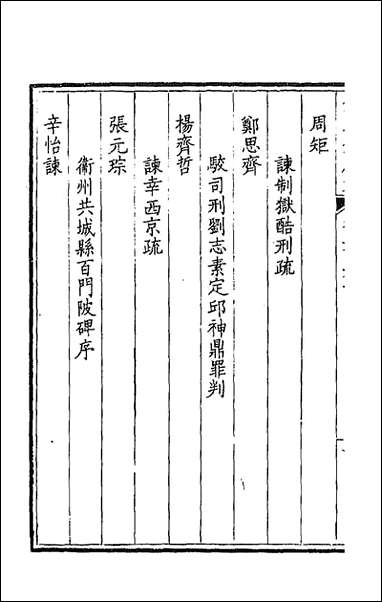 周矩
諫制獄酷刑疏
鄭思齊
駮司刑劉志素定邱神鼎罪判
楊齊哲
諫幸西京疏
張元琮
衞州共城縣百門陂碑序
辛怡諫